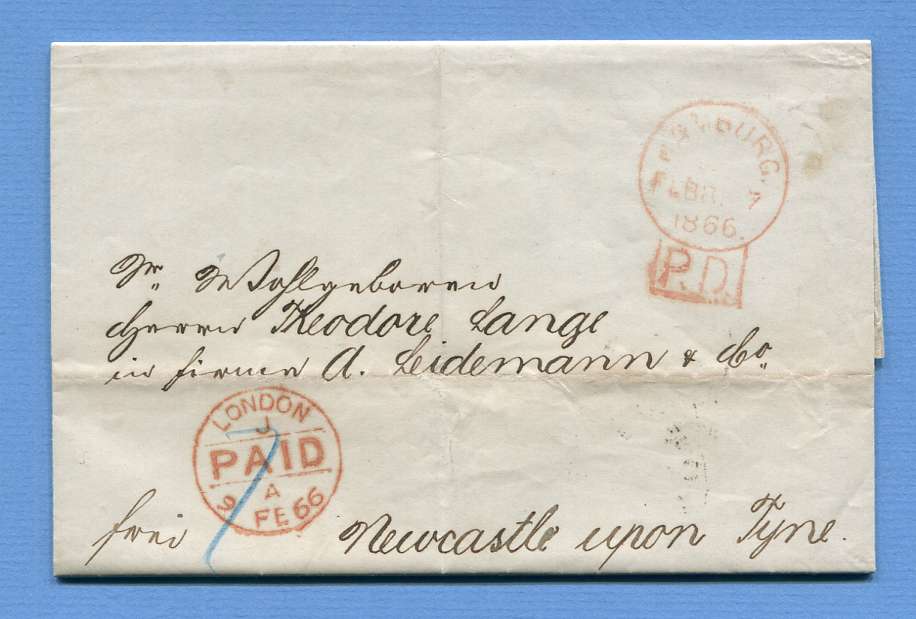 HAMBURG. A
FEBR.
1866.
P.D.
Sr. Wohlgeboren
Herrn Theodore Lange
in firma A. Leidemann & Co.
LONDON
J
PAID
A
FE 66
7
frei Newcastle upon Tyne.